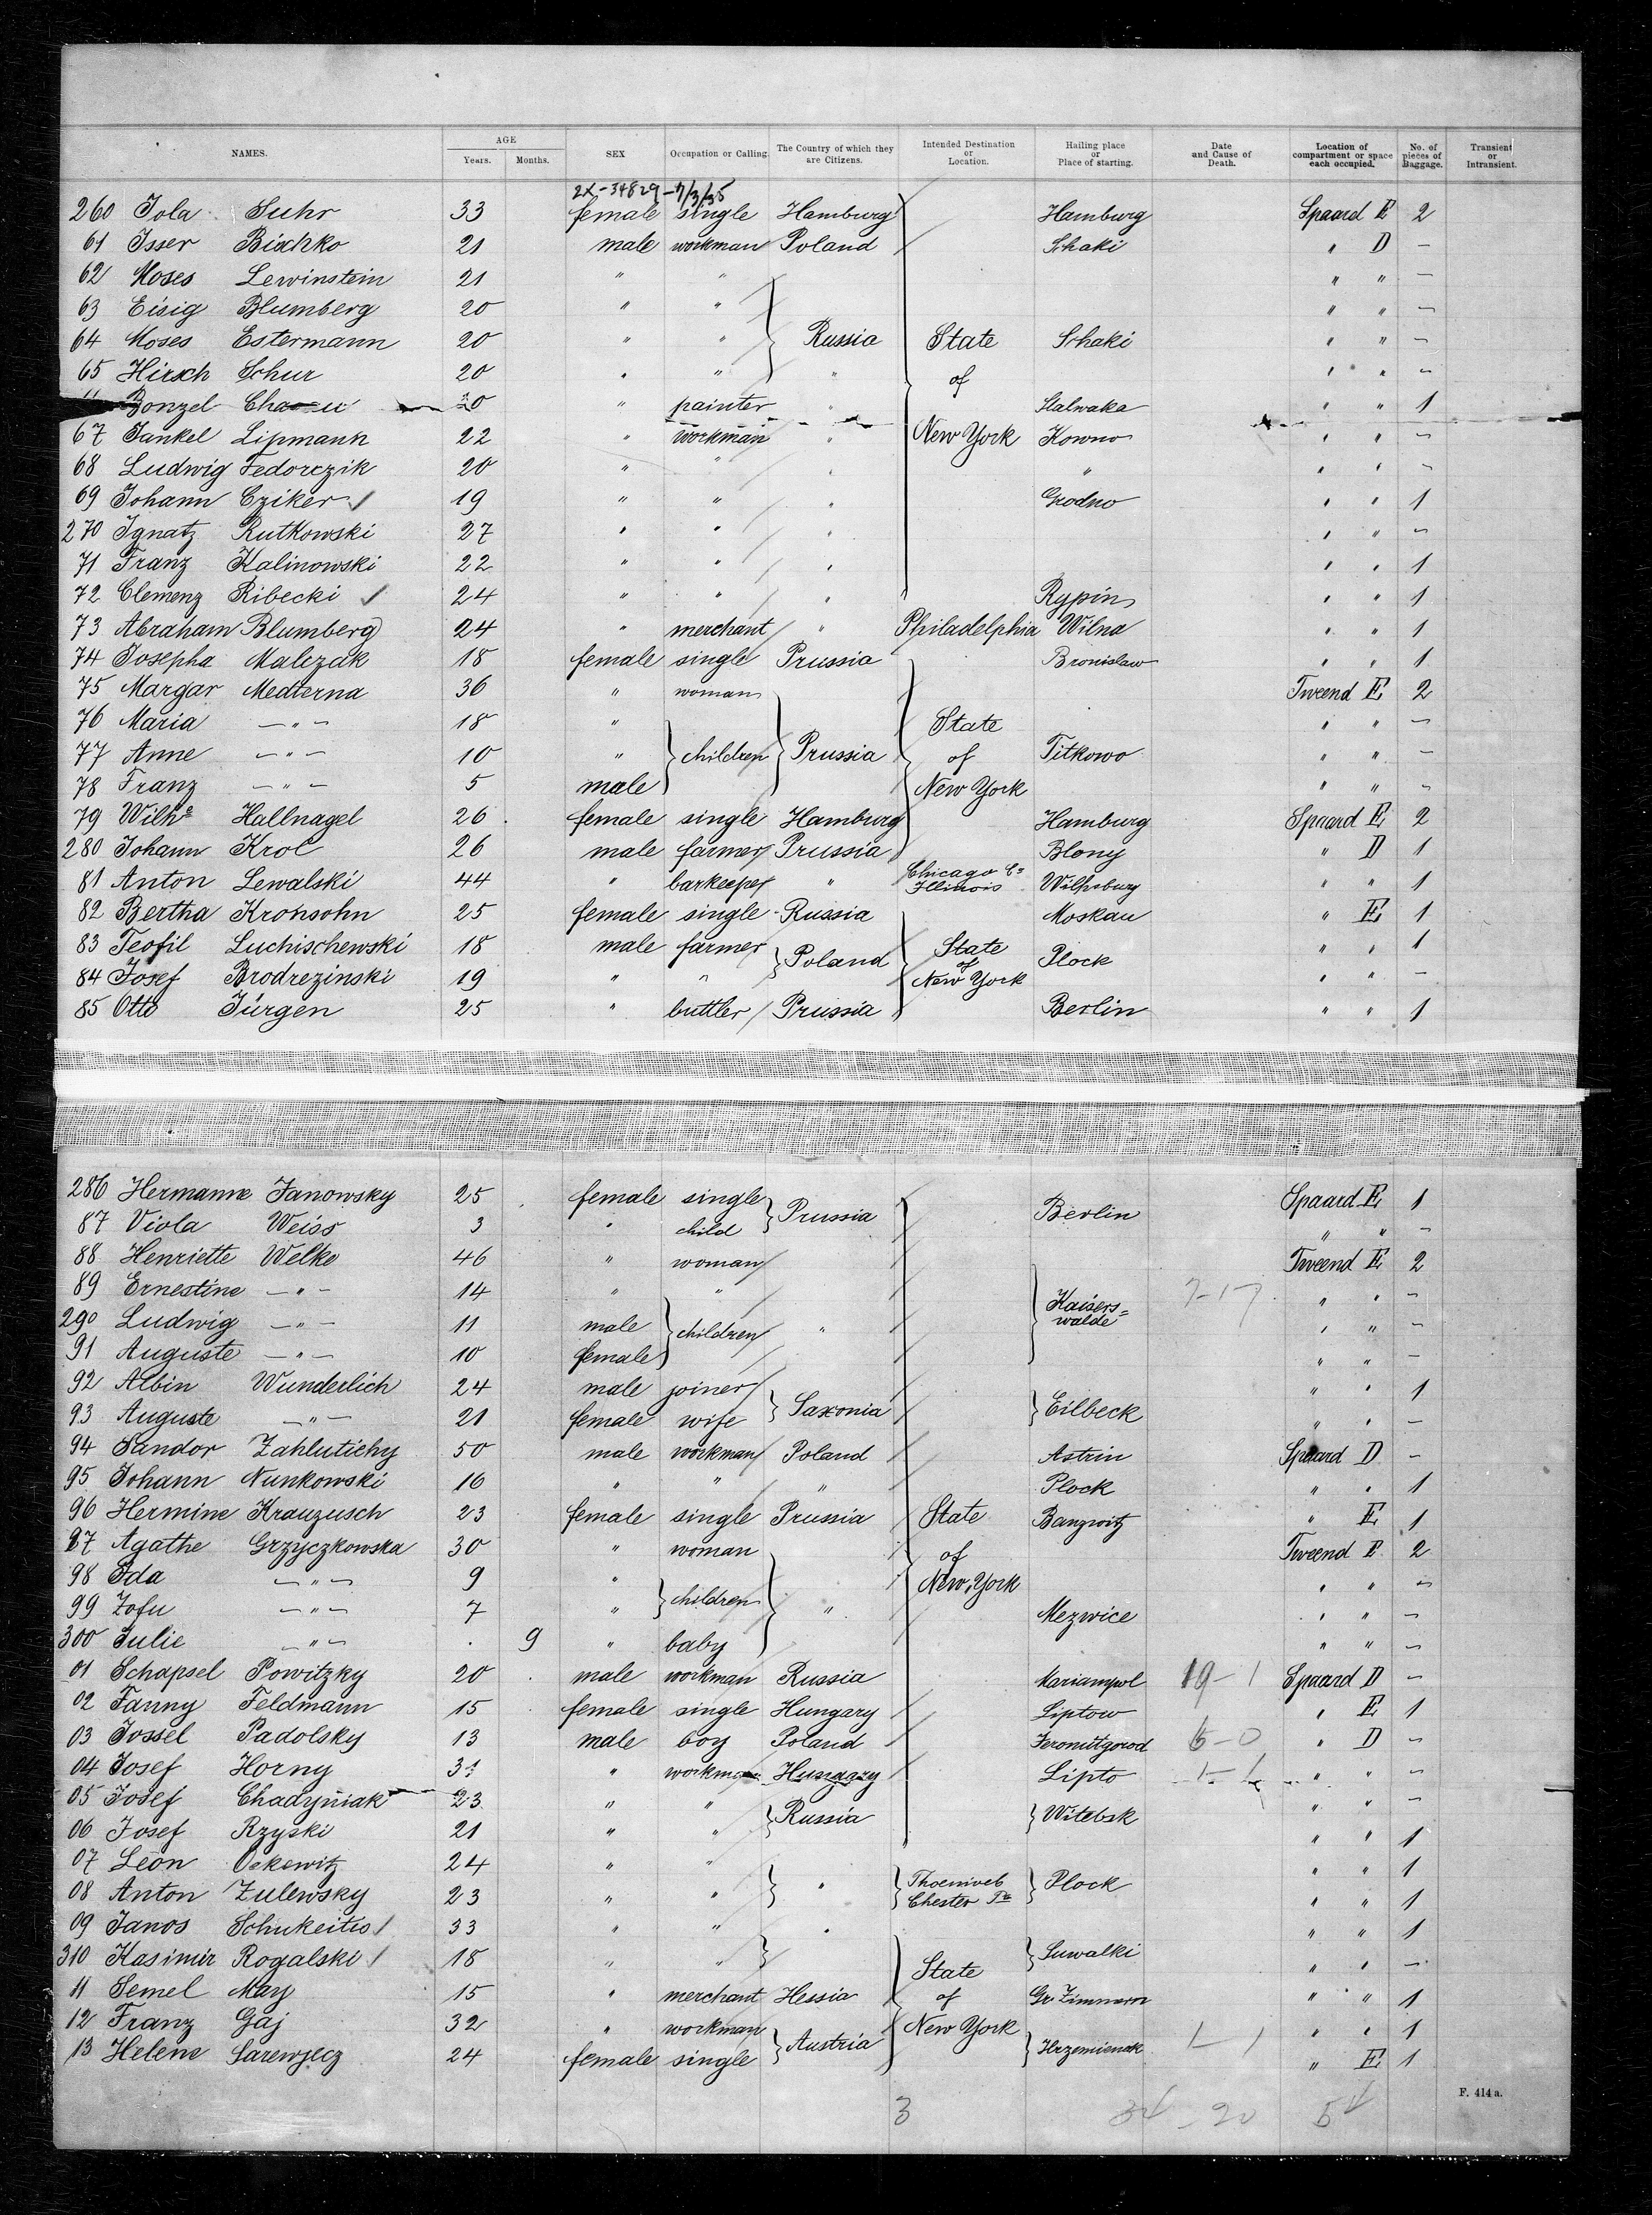 NAMES. AGE Years. Months. SEX Occupation or Calling. The Country of which they are Citizens. Intended Destination or Location. Hailing place or Place of starting. Date and Cause of Death. Location of compartment or space each occupied. No. of pieces of Baggage. Transient or Intransient.
2X-34829-7/3/35
260 Iola Suhr 33 female single Hamburg Hamburg Spaard E 2
61 Isser Bischko 21 male workman Poland Schaki " D -
62 Moses Lewinstein 21 " " " " -
63 Eisig Blumberg 20 " " " " -
64 Moses Estermann 20 " " Russia State Schaki " " -
65 Hirsch Schur 20 " " " of " " -
Bonzel 20 " painter " " " 1
67 Jankel Lipmann 22 " workman " New York Kowno " " -
68 Ludwig Fedorczik 20 " " " " " " -
69 Johann Cziker 19 " " " Grodno " " 1
270 Ignatz Rutkowski 27 " " " " " -
71 Franz Kalinowski 22 " " " " " 1
72 Clemenz Ribecki 24 " " " Rypin " " 1
73 Abraham Blumberg 24 " merchant " Philadelphia Wilna " " 1
74 Josepha Malczak 18 female single Prussia Bronislaw " " 1
75 Margar Medterna 36 " woman Tweend E 2
76 Maria -"- 18 " State " " -
77 Anne -"- 10 " children Prussia of Titkowo " " -
78 Franz -"- 5 male New York " " -
79 Wilhe Hallnagel 26 female single Hamburg Hamburg Spaard E 2
280 Johann Krol 26 male farmer Prussia Blony " D 1
81 Anton Lewalski 44 " barkeeper " Chicago Illinois Wilhsburg " " 1
82 Bertha Kronsohn 25 female single Russia Moskau " E 1
83 Teofil Luchischewski 18 male farmer Poland State of New York Plock " " 1
84 Josef Brodrezinski 19 " " " " -
85 Otto Jürgen 25 " buttler Prussia Berlin " " 1
286 Hermanne Janowsky 25 female single Prussia Berlin Spaard E 1
87 Viola Weiss 3 " child " " -
88 Henriette Welke 46 " woman Tweend E 2
89 Ernestine -"- 14 " " Kaisers= walde 7-17 " " -
290 Ludwig -"- 11 male children " " " -
91 Auguste -"- 10 female " " -
92 Albin Wunderlich 24 male joiner Saxonia Eilbeck " " 1
93 Auguste -"- 21 female wife " " -
94 Sandor Zahlutichy 50 male workman Poland Astrin Spaard D -
95 Johann Nunkowski 16 " " " Plock " " 1
96 Hermine Krauzusch 23 female single Prussia State Banzwitz " E 1
97 Agathe Grzyczkowska 30 " woman of Tweend E 2
98 Ida -"- 9 " children New York " " -
99 Zofu -"- 7 " " Mezwice " " -
300 Julie -"- . 9 " baby " " -
01 Schapsel Powitzky 20 male workman Russia Mariampol 19-1 Spaard D -
02 Fanny Feldmann 15 female single Hungary Liptow " E 1
03 Jossel Padolsky 13 male boy Poland 6-0 " D -
04 Josef Horny 31 " workman Hungary Lipto 1-1 " " -
05 Josef Chadyniak 23 " " Russia Witebsk " " -
06 Josef Rzyski 21 " " " " 1
07 Leon 24 " " " Chester Pa Plock " " 1
08 Anton Zulewsky 23 " " " " 1
09 Janos Schukeitis 33 " " " " " 1
310 Kasimir Rogalski 18 " " State Suwalki " " -
11 Semel May 15 " merchant Hessia of Gr. Zimmern " " 1
12 Franz Gaj 32 " workman Austria New York 1-1 " " 1
13 Helene Sarewjecz 24 female single " E 1
F. 414 a.
3 34-20 54